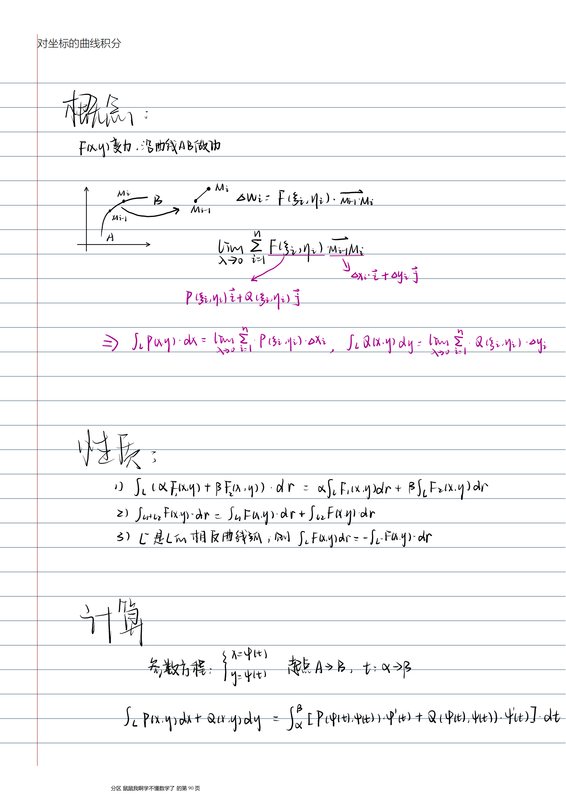 对坐标的曲线积分
概念:
F(x,y)变力,沿曲线AB做功
Mi B Mi-1 A
Mi Mi-1 ΔWi = F(ξi,ηi)·→Mi-1Mi
lim λ→0 n∑i=1 F(ξi,ηi)·→Mi-1Mi
Δxi·→i+Δyi→j
P(ξi,ηi)→i+Q(ξi,ηi)→j
⇒ ∫L P(x,y)·dx = lim λ→0 n∑i=1·P(ξi,ηi)·Δxi, ∫L Q(x,y)dy = lim λ→0 n∑i=1·Q(ξi,ηi)·Δyi
性质:
1) ∫L(αF1(x,y)+βF2(x,y))·dr = α∫L F1(x,y)dr+β∫L F2(x,y)dr
2) ∫L1+L2 F(x,y)·dr = ∫L1 F(x,y)·dr+∫L2 F(x,y)·dr
3) L⁻是L的相反曲线弧,则 ∫L F(x,y)dr=-∫L⁻F(x,y)·dr
计算
参数方程: {x=φ(t) y=ψ(t) 起点A→B, t:α→β
∫L P(x,y)dx+Q(x,y)dy = ∫αβ[P(φ(t),ψ(t))·φ'(t)+Q(φ(t),ψ(t))·ψ'(t)]·dt
分区 鼠鼠我啊学不懂数学了 的第 90 页